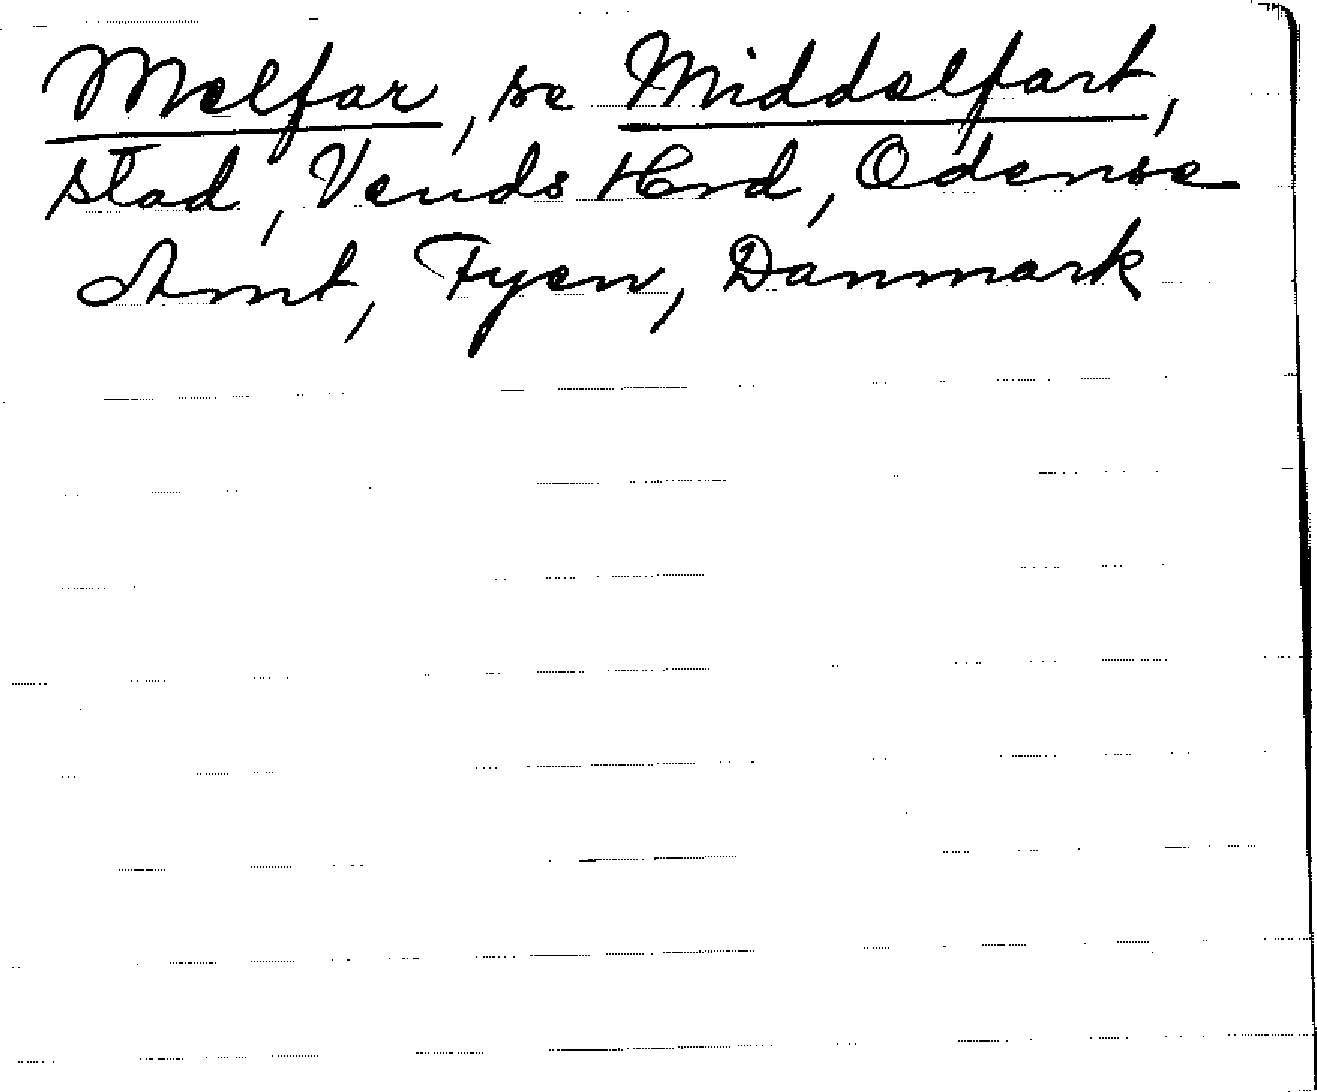 Melfar, se Middelfart,
stad, Vends Hrd, Odense
Amt, Fyen, Danmark